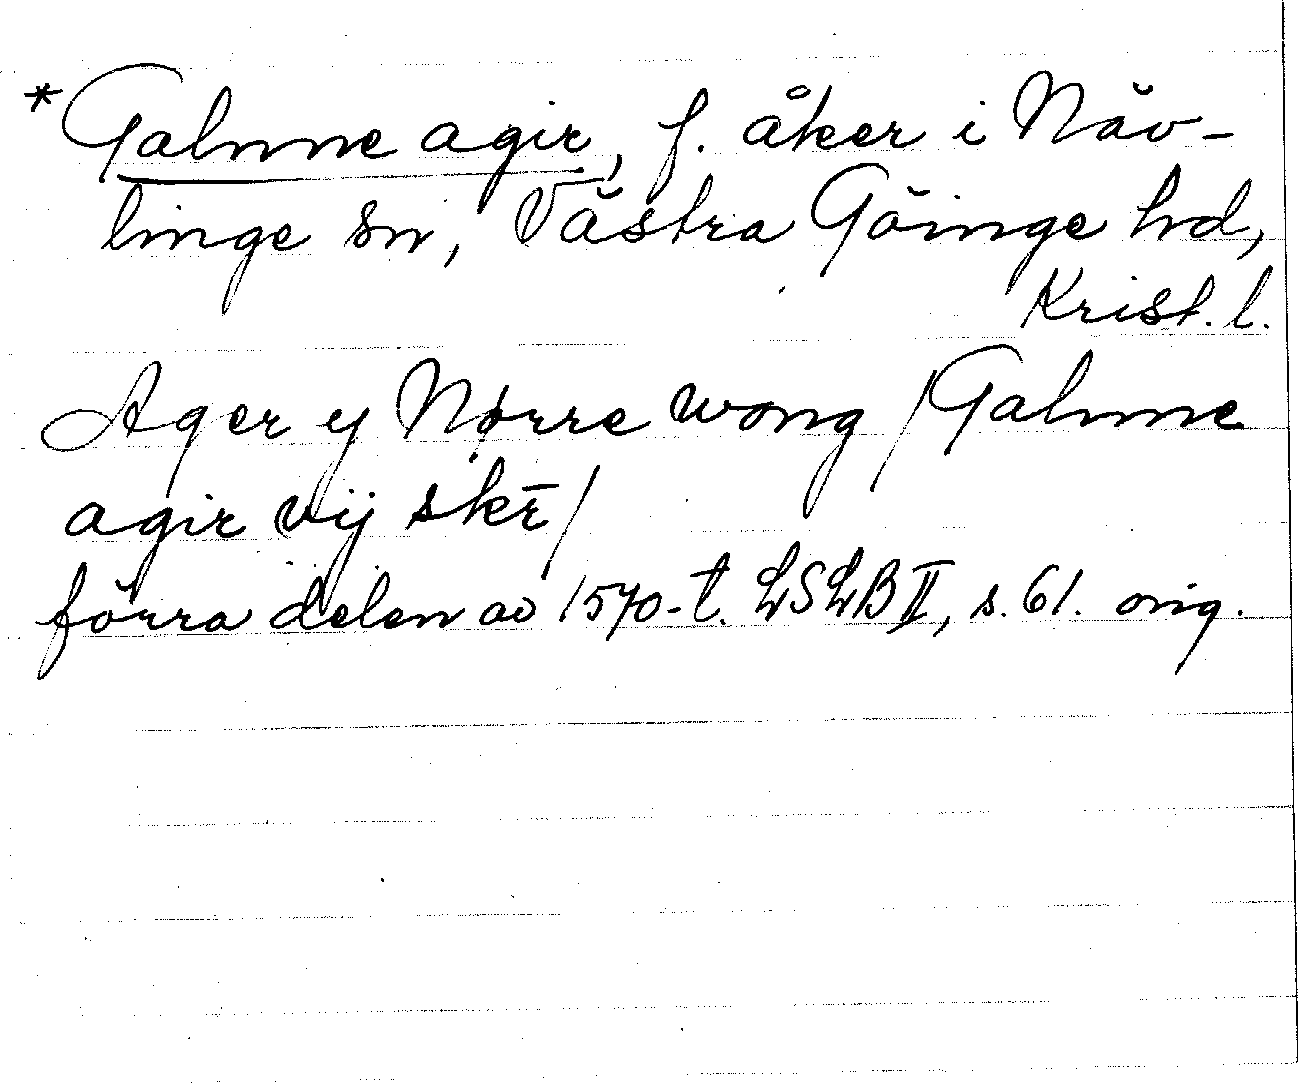 *Galnne agir, f. åker i Näv-
linge sn, Västra Göinge hd,
Krist. l.
Ager y Nørre wong /Galnne
agir vij skē/
förra delen av 1570-t. LSLB II, s. 61. orig.